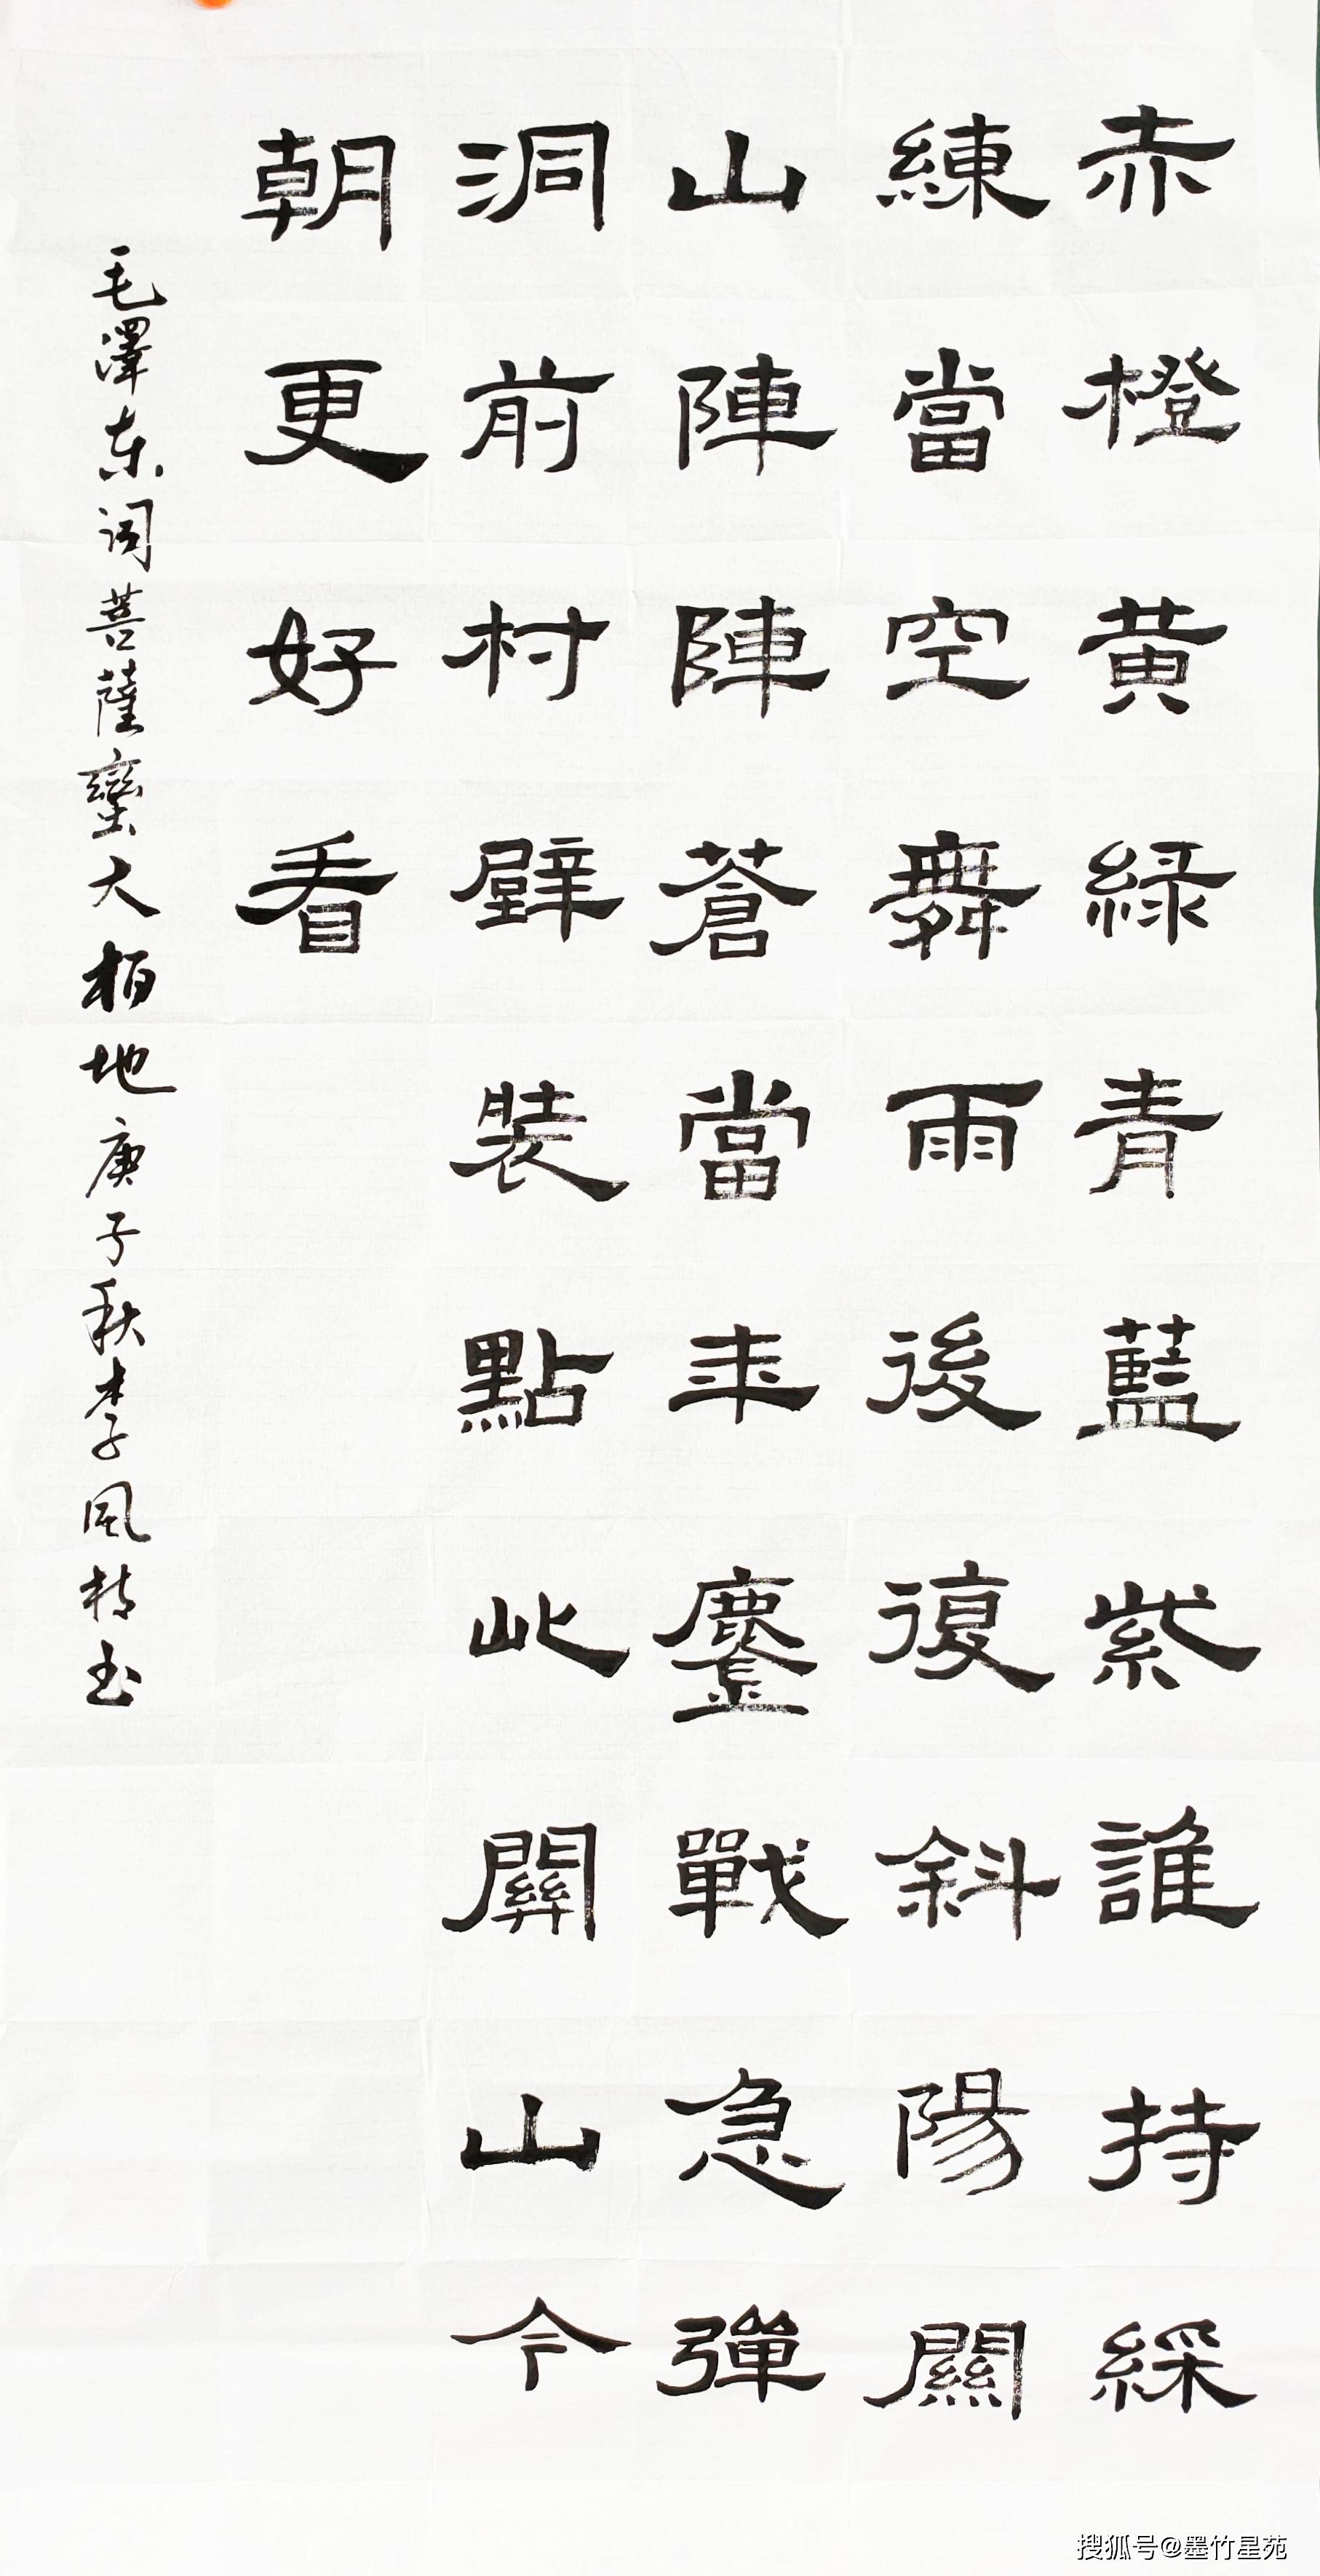 赤橙黃綠青藍紫誰持綵
練當空舞雨後復斜陽關
山陣陣蒼當年鏖戰急彈
洞前村壁裝點此關山今
朝更好看
毛澤东词菩薩蠻大柏地庚子秋李风精书
搜狐号@墨竹星苑